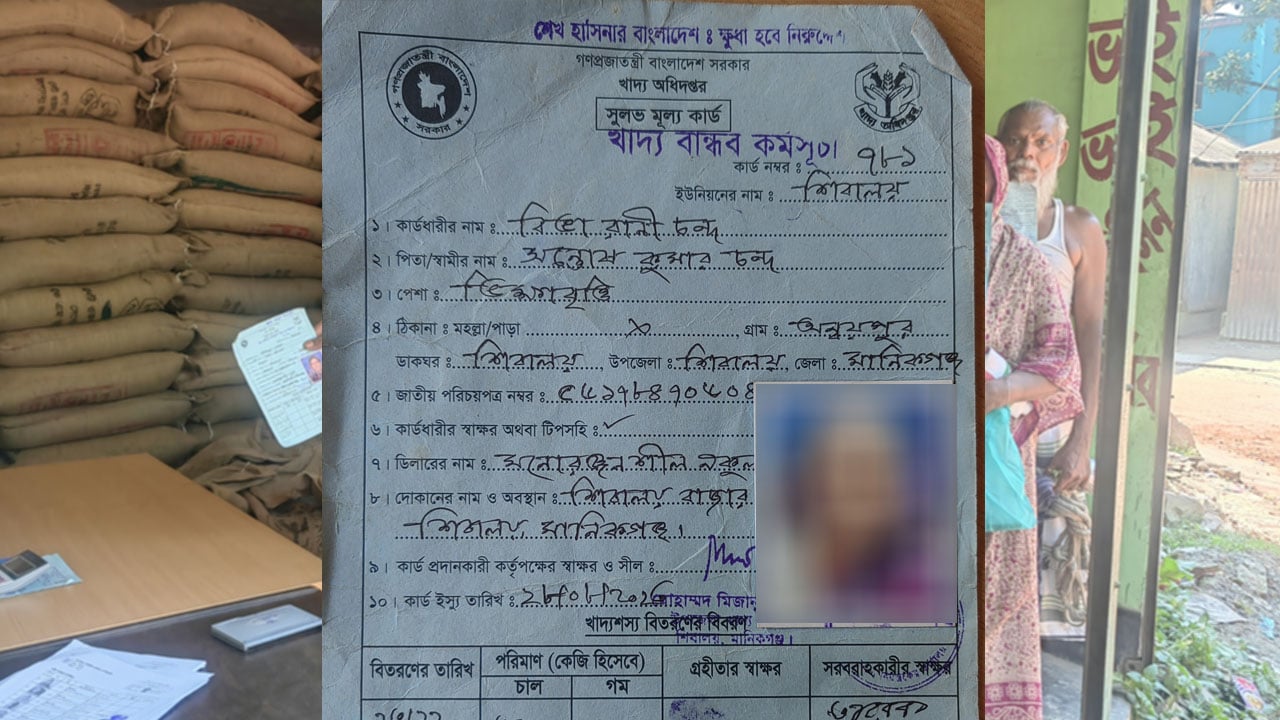 শেখ হাসিনার বাংলাদেশ ঃ ক্ষুধা হবে নিরুদ্দেশ
গণপ্রজাতন্ত্রী বাংলাদেশ সরকার
খাদ্য অধিদপ্তর
সুলভ মূল্য কার্ড
খাদ্য বান্ধব কর্মসূচী
কার্ড নম্বর ঃ ৭৮১
ইউনিয়নের নাম ঃ শিবালয়
১। কার্ডধারীর নাম ঃ রিভা রানী চন্দ
২। পিতা/স্বামীর নাম ঃ সন্তোষ কুমার চন্দ
৩। পেশা ঃ ভিক্ষাবৃত্তি
৪। ঠিকানা ঃ মহল্লা/পাড়া × , গ্রাম ঃ অন্বয়পুর
ডাকঘর ঃ শিবালয় , উপজেলা ঃ শিবালয় , জেলা ঃ মানিকগঞ্জ
৫। জাতীয় পরিচয়পত্র নম্বর ঃ
৬। কার্ডধারীর স্বাক্ষর অথবা টিপসহি ঃ
৭। ডিলারের নাম ঃ মনোরঞ্জন শীল নকুল
৮। দোকানের নাম ও অবস্থান ঃ শিবালয় বাজার
শিবালয় মানিকগঞ্জ।
৯। কার্ড প্রদানকারী কর্তৃপক্ষের স্বাক্ষর ও সীল ঃ
১০। কার্ড ইস্যু তারিখ ঃ
খাদ্যশস্য বিতরণের বিবরণ
শিবালয়, মানিকগঞ্জ।
বিতরণের তারিখ পরিমাণ (কেজি হিসেবে) গ্রহীতার স্বাক্ষর সরবরাহকারীর স্বাক্ষর
চাল গম